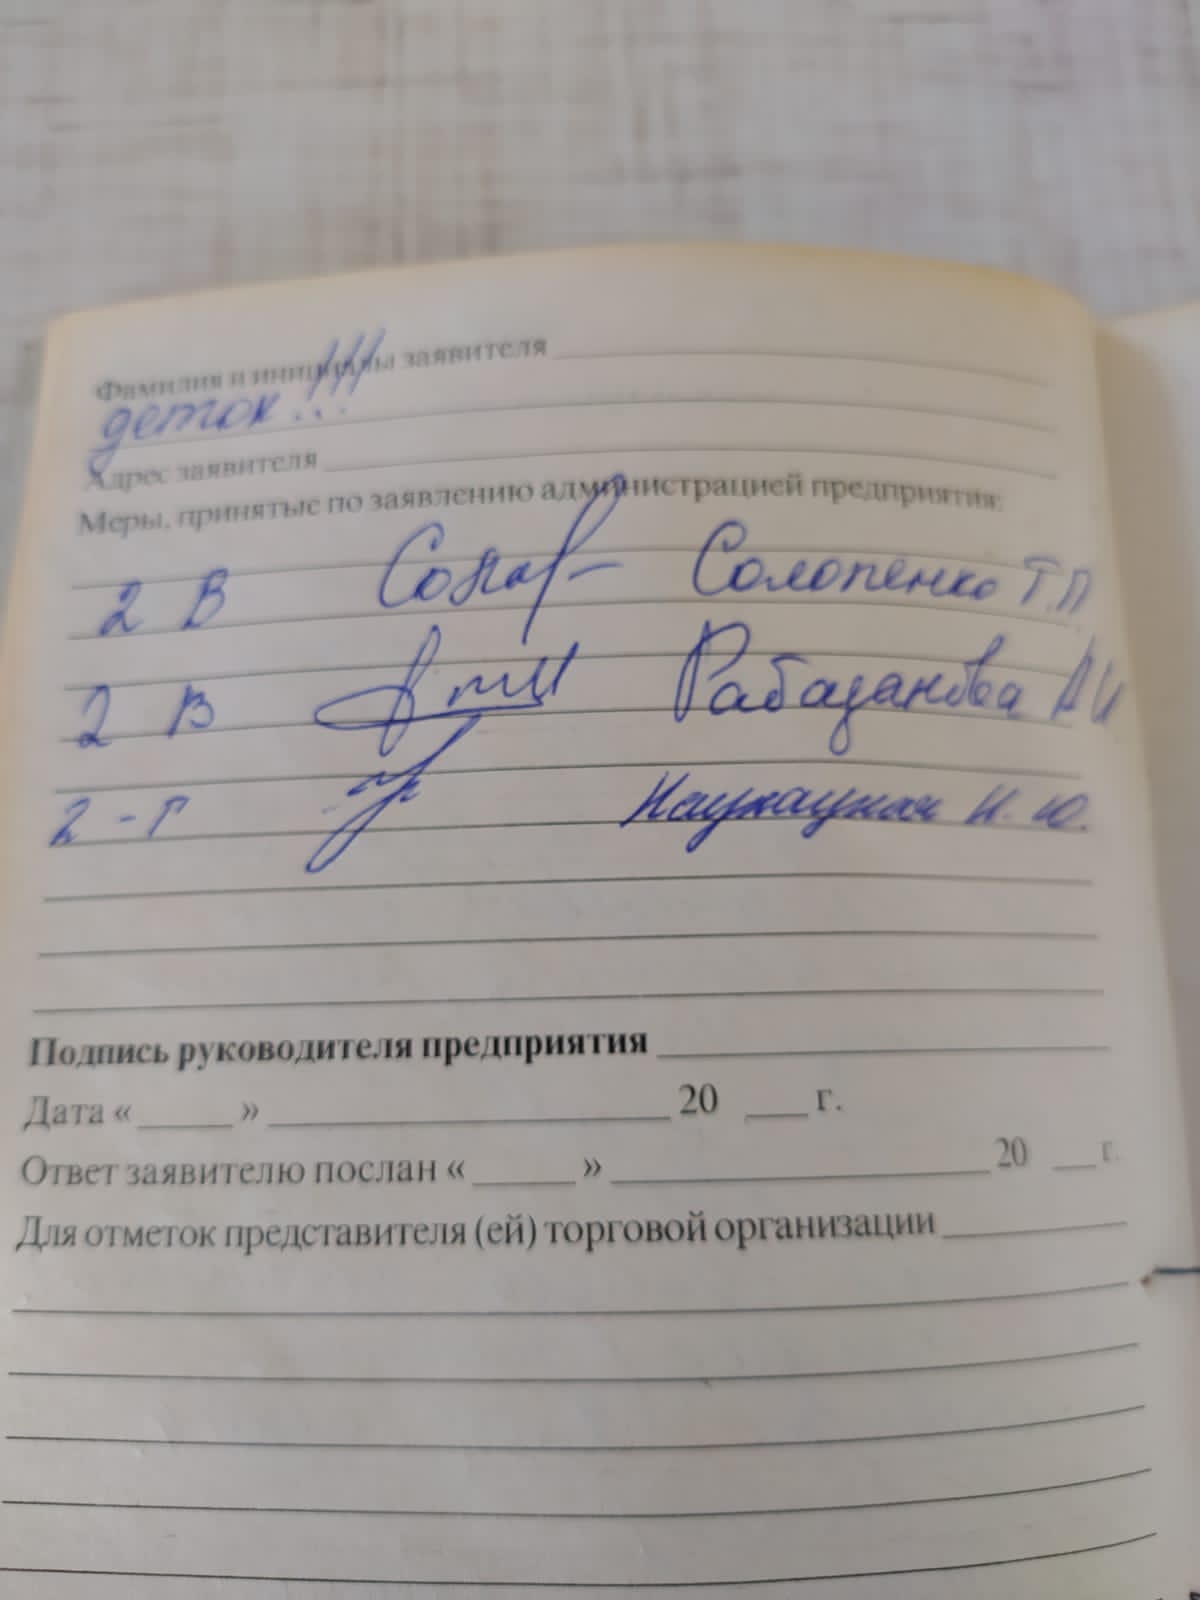 Фамилия и инициалы заявителя
деток...
Адрес заявителя
Меры, принятые по заявлению администрацией предприятия:
2 В Солопенко Т.П
2 В Рабаданова А И
2 - Г Н. Ю.
Подпись руководителя предприятия
Дата « » 20 г.
Ответ заявителю послан « » 20 г.
Для отметок представителя (ей) торговой организации